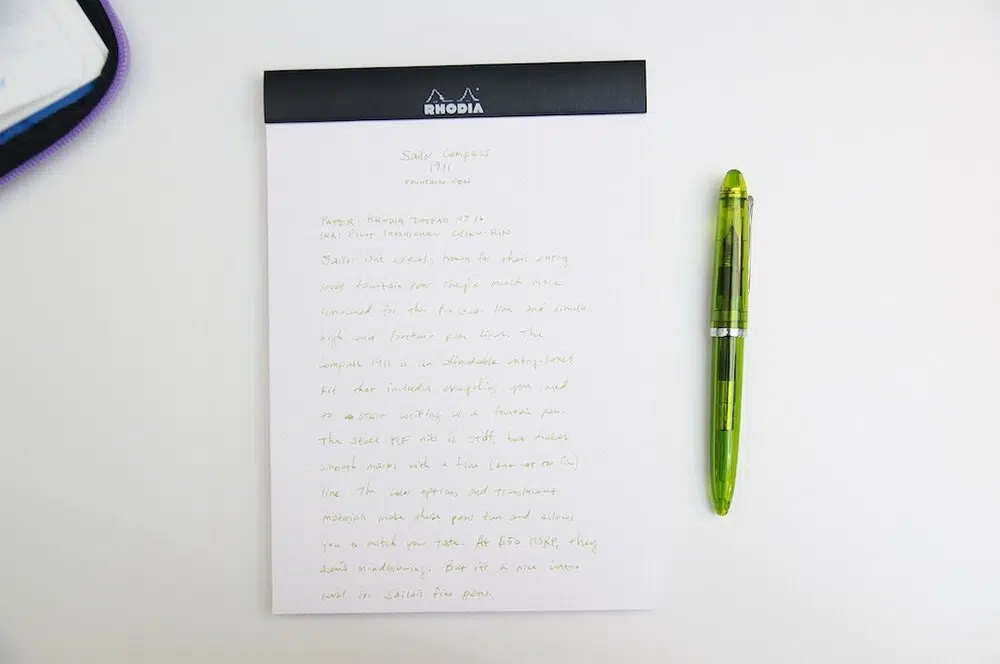 RHODIA
Sailor Compass
1911
FOUNTAIN PEN
PAPER: RHODIA DOTPAD No 16
INK: PILOT IROSHIZUKU CHIKU-RIN
Sailor isn't exactly known for their entry
level fountain pens. They're much more
renowned for the Pro Gear line and similar
high end fountain pen lines. The
Compass 1911 is an affordable entry-level
kit that includes everything you need
to start writing w a fountain pen.
The steel MF nib is stiff, but makes
smooth marks with a fine (but not too fine)
line. The color options and translucent
materials make these pens fun and allows
you to match your taste. At $50 MSRP, they
aren't mindblowing. But it's a nice intro
level for Sailor's fine pens.